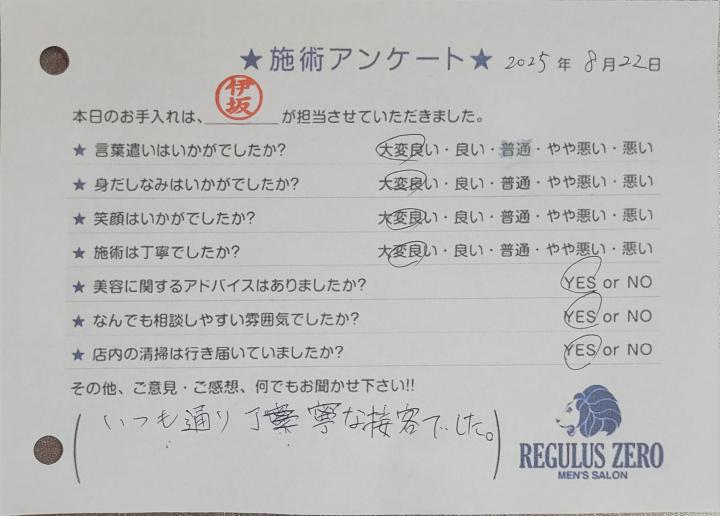 ★施術アンケート★ 2025年 8月22日
本日のお手入れは、伊坂が担当させていただきました。
★ 言葉遣いはいかがでしたか? 大変良い・良い・普通・やや悪い・悪い
★ 身だしなみはいかがでしたか? 大変良い・良い・普通・やや悪い・悪い
★ 笑顔はいかがでしたか? 大変良い・良い・普通・やや悪い・悪い
★ 施術は丁寧でしたか? 大変良い・良い・普通・やや悪い・悪い
★ 美容に関するアドバイスはありましたか? YES or NO
★ なんでも相談しやすい雰囲気でしたか? YES or NO
★ 店内の清掃は行き届いていましたか? YES or NO
その他、ご意見・ご感想、何でもお聞かせ下さい!!
(いつも通り丁寧な接客でした。)
REGULUS ZERO
MEN'S SALON